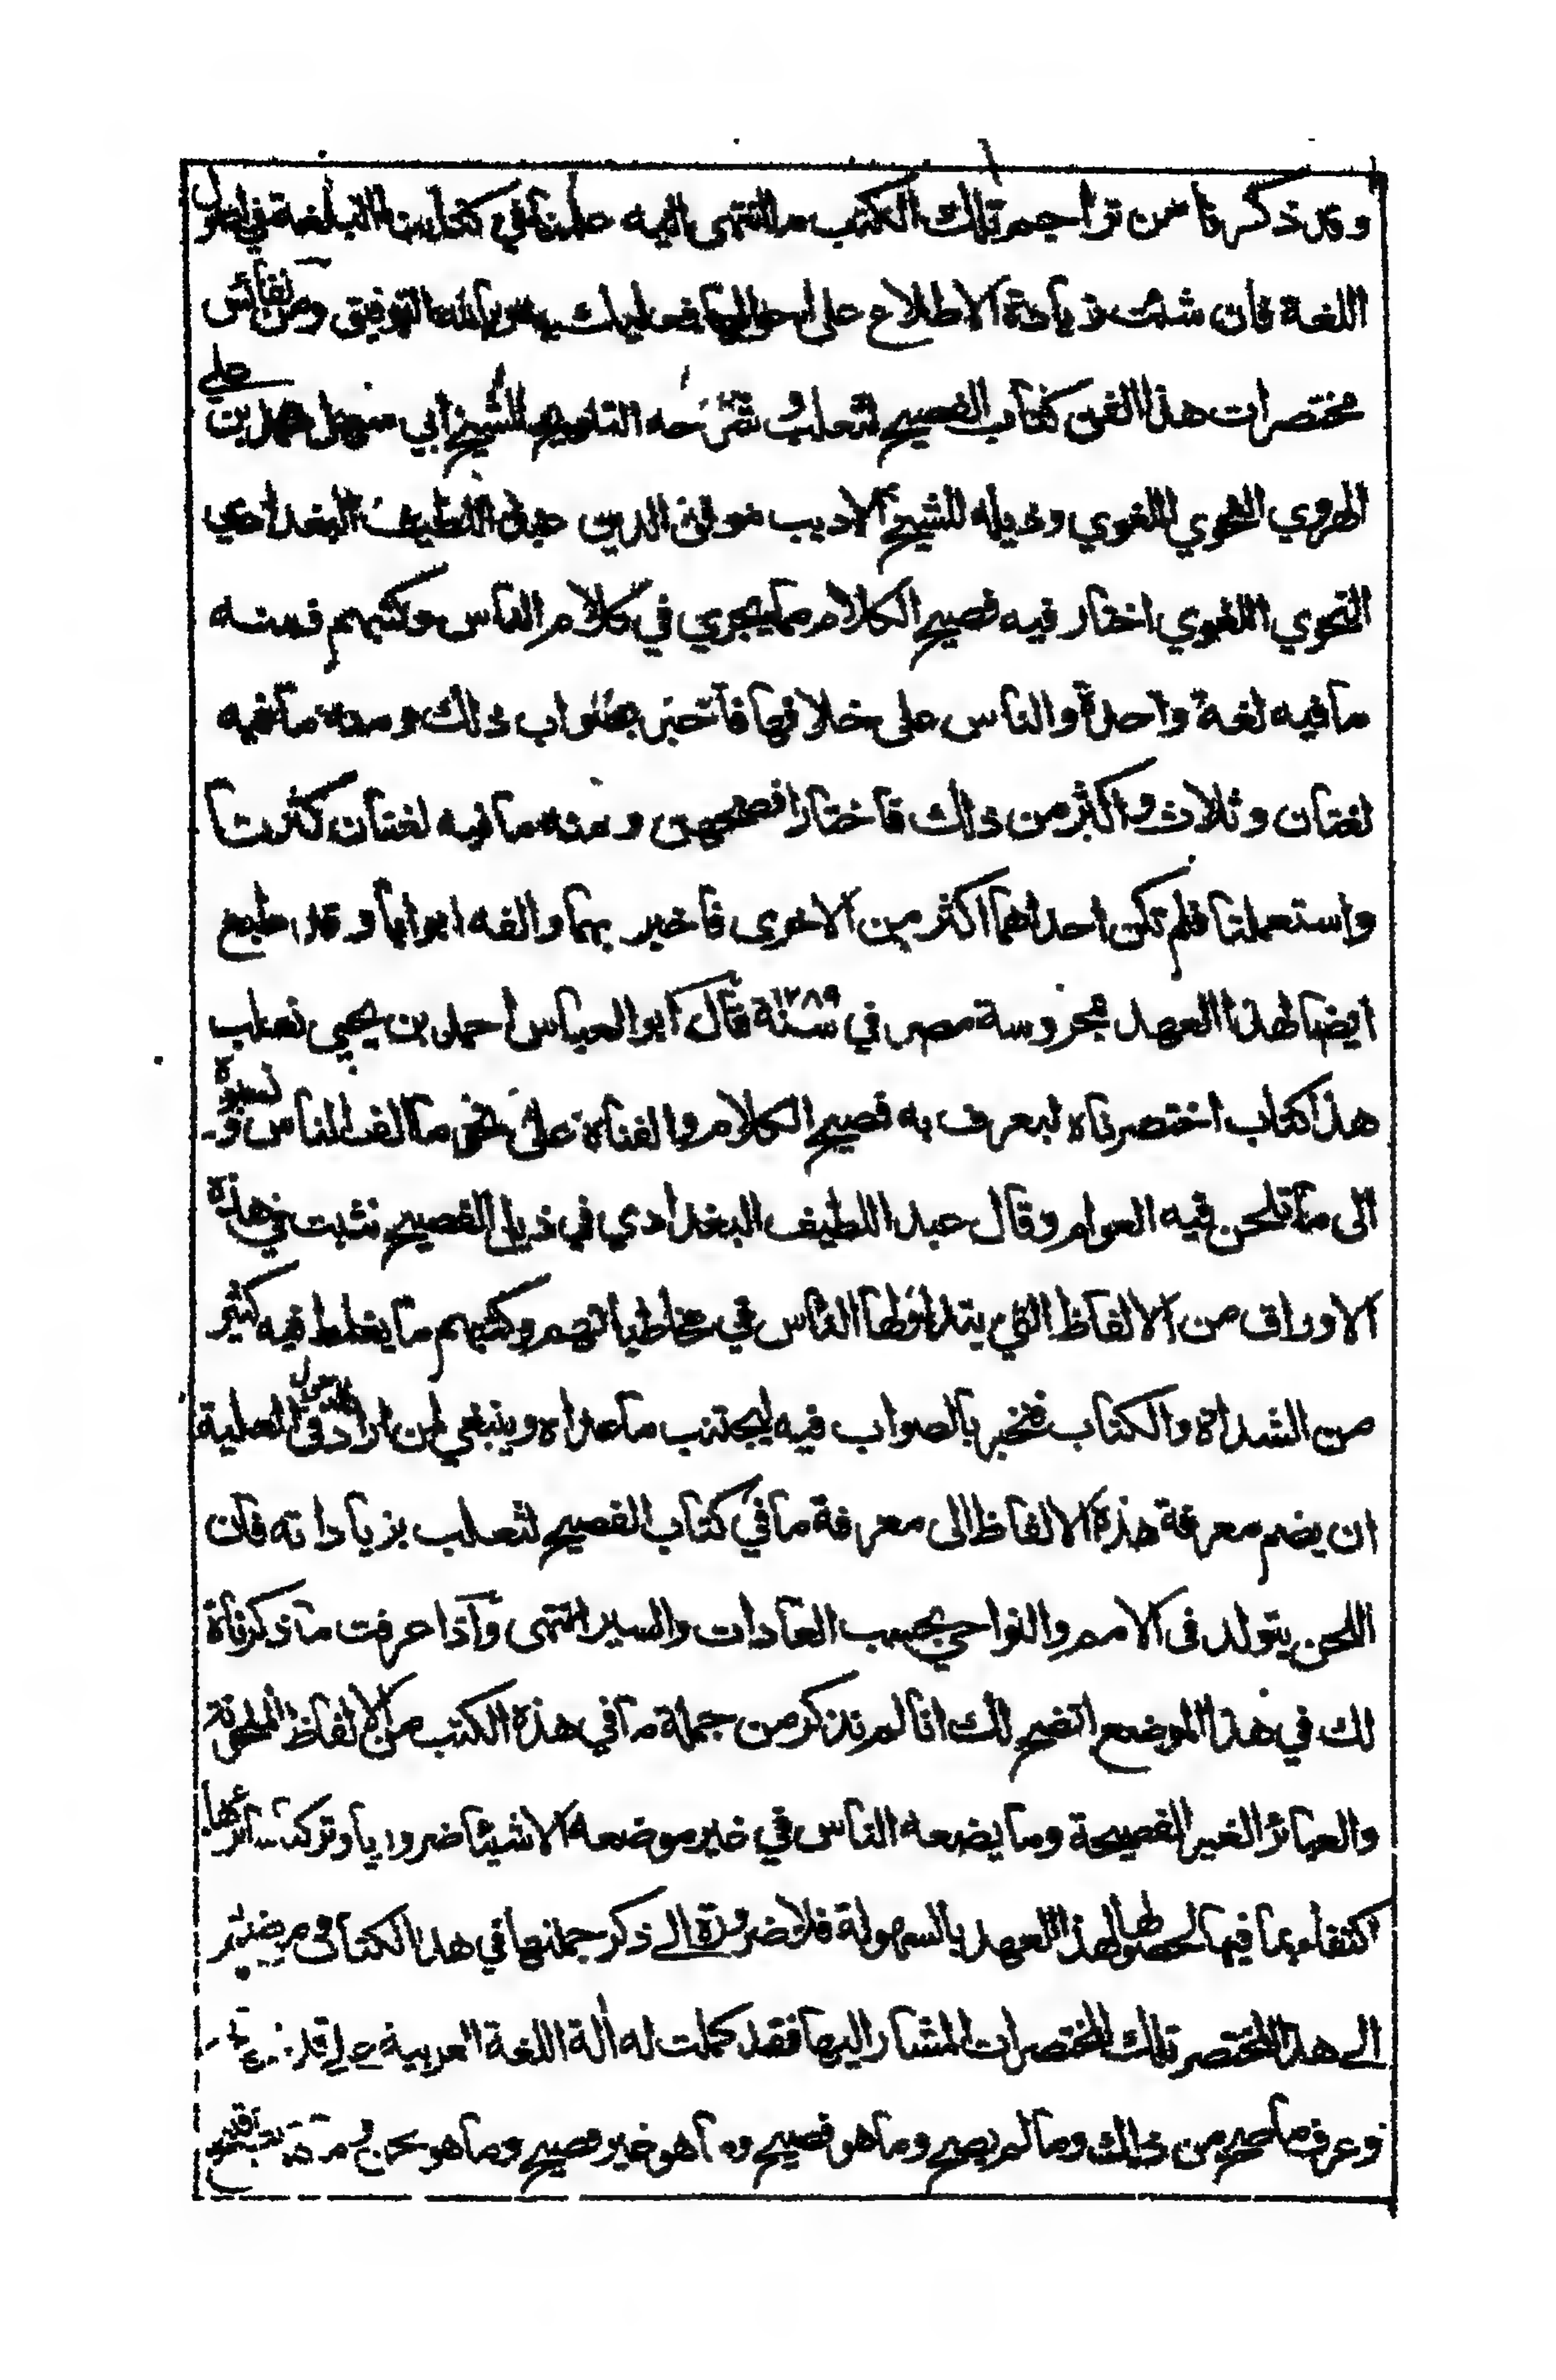 وقد ذكرنا من تراجم تلك الكتب ما انتهى اليه علمنا في كتابنا البلغة في اصول
اللغة فان شئت زيادة الاطلاع على احوالها فعليك به وبالله التوفيق ومن نفائس
مختصرات هذا الفن كتاب الفصيح لثعلب وشرحه التلويح للشيخ ابي سهل محمد بن علي
الهروي النحوي اللغوي وذيله للشيخ الاديب موفق الدين عبد اللطيف البغدادي
النحوي اللغوي اختار فيه فصيح الكلام مما يجري في كلام الناس وكتبهم فمنه
ما فيه لغة واحدة والناس على خلافها فاخبر بصواب ذلك ومنه ما فيه
لغتان وثلاث واكثر من ذلك فاختار افصحهن ومنه ما فيه لغتان كثرتا
واستعملتا فلم تكن احداهما اكثر من الاخرى فاخبر بهما والفه ابوابا وقد طبع
ايضا لهذا العهد بمحروسة مصر في سنة ١٢٨٩ قال ابو العباس احمد بن يحيى ثعلب
هذا كتاب اختصرناه ليعرف به فصيح الكلام والفناه على نحو ما الف الناس ونسبوه
الى ما تلحن فيه العوام وقال عبد اللطيف البغدادي في ذيل الفصيح نثبت في هذه
الاوراق من الالفاظ التي يتداولها الناس في مخاطباتهم وكتبهم ما يغلط فيه كثير
من الشداة والكتاب فنخبر بالصواب فيه ليجتنب ما عداه وينبغي لمن اراد الدخول في العلية
ان يضم معرفة هذه الالفاظ الى معرفة ما في كتاب الفصيح لثعلب بزياداته فان
اللحن يتولد في الامم والنواحي بحسب العادات والسير انتهى واذا عرفت ما ذكرناه
لك في هذا الموضع اتضح لك انا لم نذكر من جملة ما في هذه الكتب من الالفاظ الملحونة
والعبائر الغير الفصيحة وما يضعه الناس في غير موضعه الا شيئا ضروريا وتركنا سائرها
اكتفاء بما فيها لحصولها لهذا العهد بالسهولة فلا ضرورة الى ذكر جملتها في هذا الكتاب
الى هذا المختصر تلك المختصرات المشار اليها فقد كملت له آلة اللغة العربية على
وعرف ما صح من ذلك وما لم يصح وما هو فصيح وما هو غير فصيح وما هو لحن